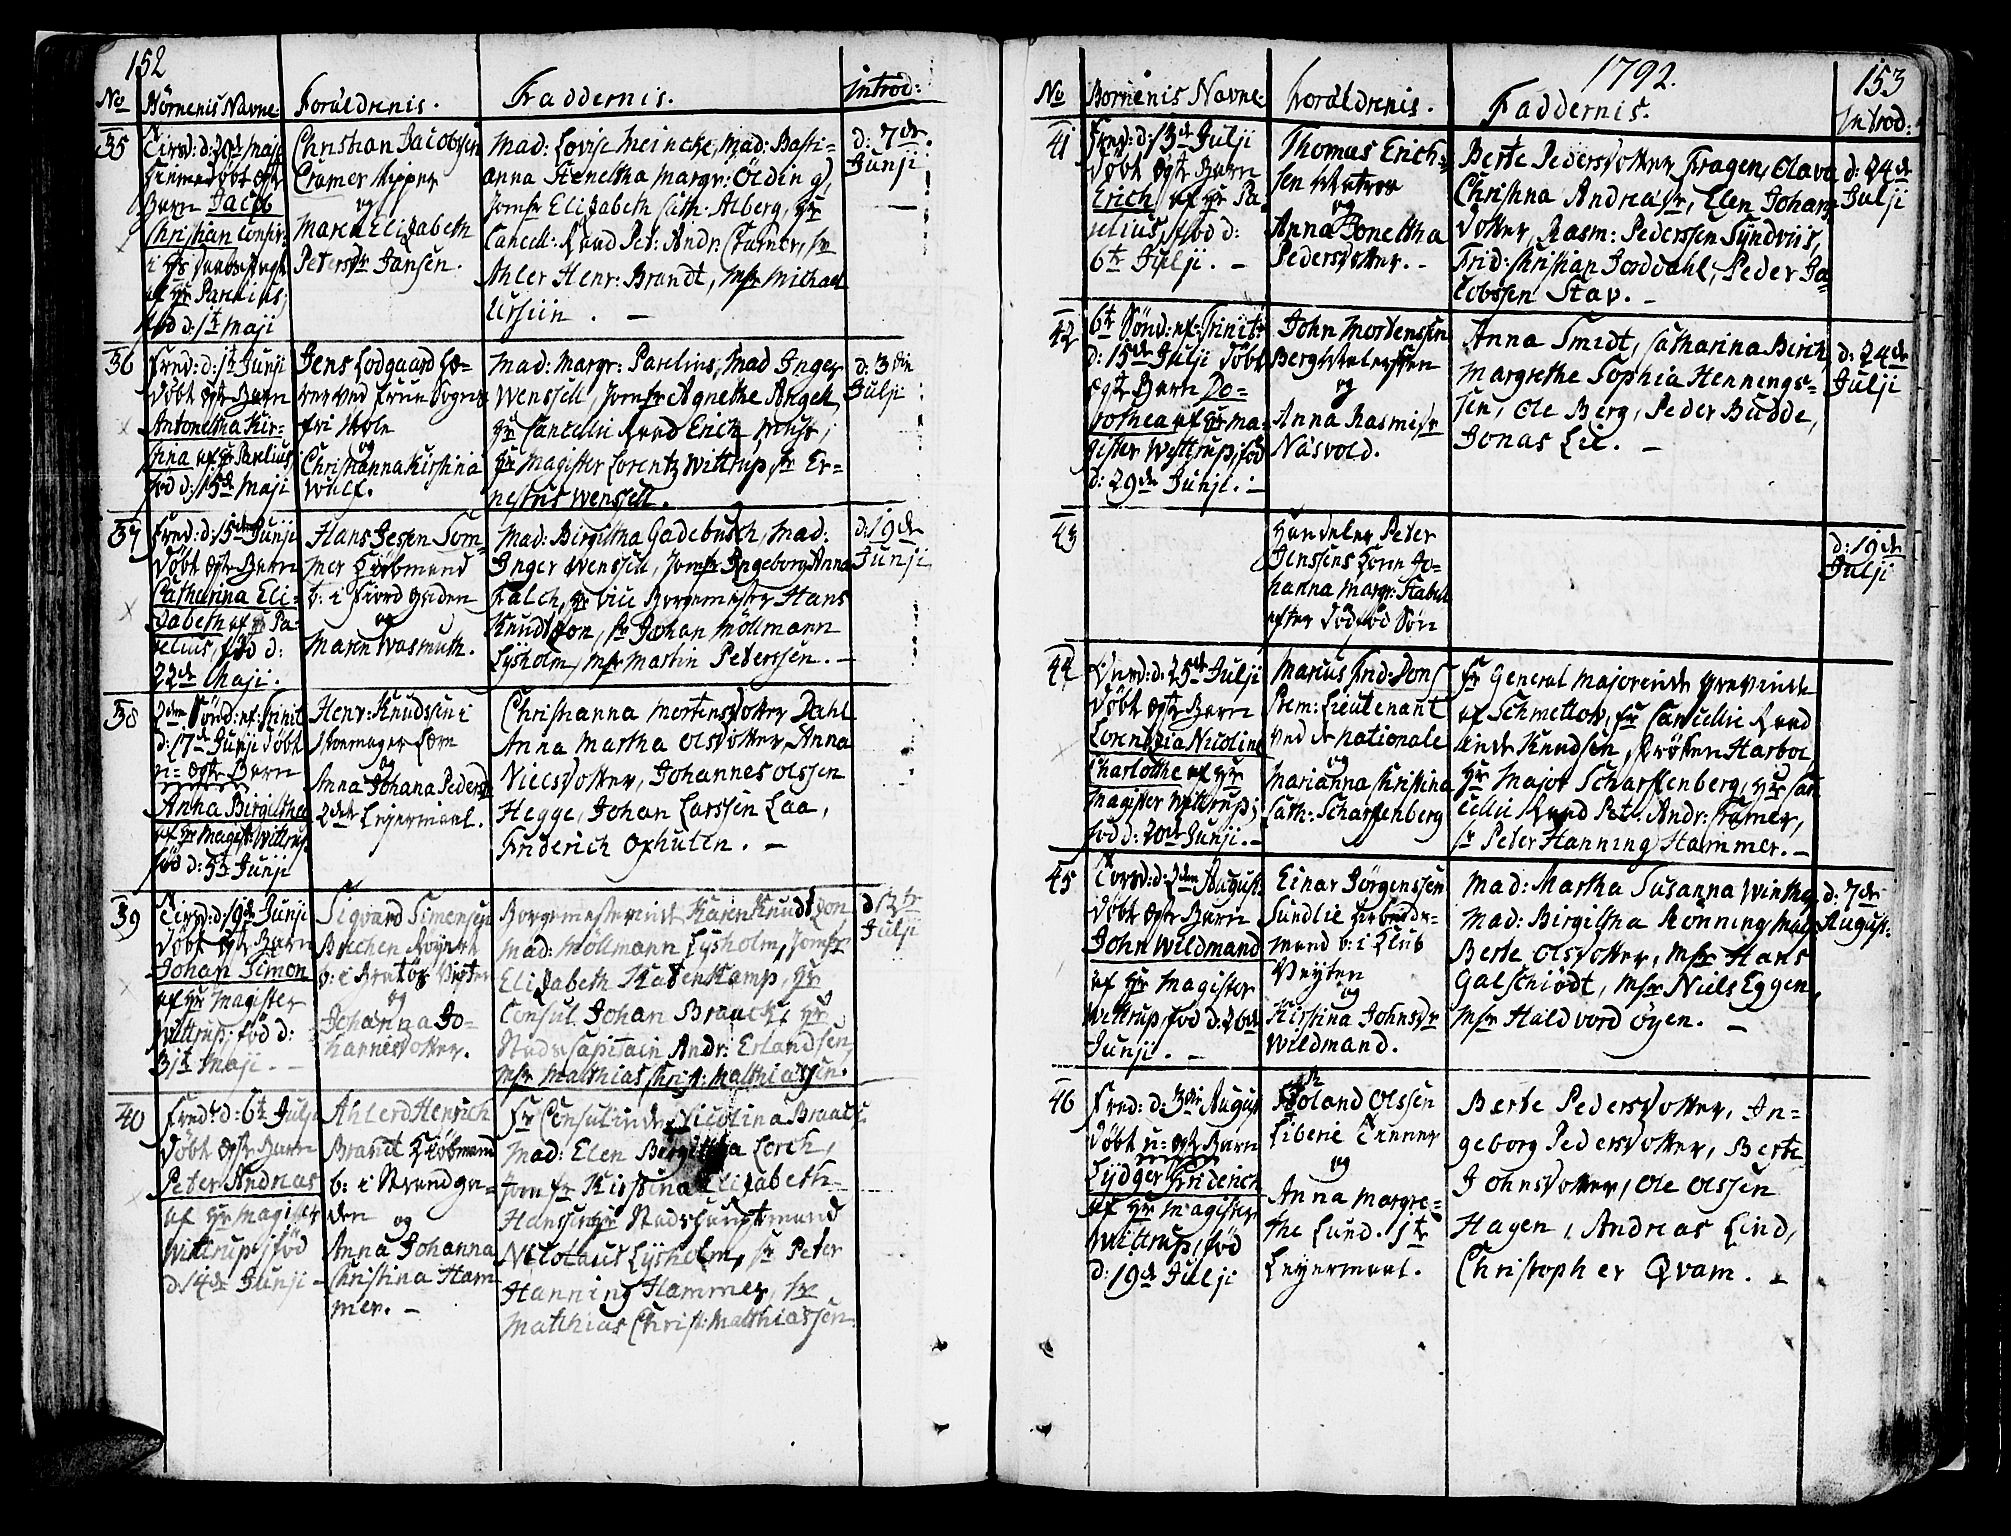 152
No
Börnenis Navne
Forældrenis.
Faddernis.
Introd:
35
Tirsd: d: 29de Maji
hiemedøbt ægte
Barn Jacob
Christian Confir:
af Hr Parelius,
fød d: 1te Maji
Christian Jacobssen
Cramer Skipper
og
Maren Elizabeth
Petersdr Jansen.
Mad: Lovise Meincke, Mad: Basti-
anna Henritha Margr: Ölding,
Jomfr Elizabeth Cath: Alberg, Hr
Cancell: Raad Pet: Andr: Cramer, Sr
Ahler Henr: Brandt, Msr Michael
d: 7de
Junji
36
Fred: d: 1te Junji
døbt ægte Barn
Antonetha Kir-
stina af Hr Parelius
fød d: 15de Maji
Jens Lodgaard Læ-
rer ved Frue Sogns
fri Skole
og
Christianna Kirstina
Wulf.
Mad: Margr: Parelius, Mad Inger
Wenssell, Jomfr Agnethe Angell,
Hr Cancellie Raad Erich Must,
Hr Magister Lorentz Wittrup, Sr Er-
nestus Wenssell.
d: 3die
Julji
37
Fred: d: 15de Junji
døbt ægte Barn
Catharina Eli-
zabeth af Hr Pa-
relius, fød d:
22de Maji.
Hans Jespr Som-
mer Kiöbmand
b: i Fiord Gaden
og
Maren Wasmuth.
Mad: Birgitha Gadebusch, Mad:
Inger Wenssell, Jomfr Ingeborg Anna
Falch, Hr Vice Borgemester Hans
Knudtzon, Sr Johan Möllmann
Lysholm, Msr Martin Peterssen. -
d: 19de
Junji
38
2den Sønd: af Trinit:
d: 17de Junji døbt
u-ægte Barn
Anna Birgitha
af Hr Magist: Wittrup,
fød d: 5te Junji
Henr: Knudssen i
Skomager Lære
og
Anna Johana Pedersdr
2det Leyermaal.
Christianna Mortensdotter Dahl
Anna Martha Olsdotter, Anna
Nielsdotter, Johannes Olssen
Hegge, Johan Larssen Laa,
Friderich Oxhulen. -
39
Tirsd: d: 19de Junji
døbt ægte Barn
Johan Simon
af Hr Magister
Wittrup, fød d:
31te Maji. -
Sigvard Simensen
b: i Bratör Vejter
og
Johanna Jo-
hannisdotter.
Borgemesterinde Karen Knudtzon
Mad: Möllmann Lysholm, Jomfr
Elizabeth Hadenkamp, Hr
Consul Johan Braack, Hr
Stads Capitain Andr: Erlandsen,
Msr Matthias Christ: Matthiassen.
d: 12te
Julji
40
Fred: d: 6te Julji
døbt ægte Barn
Peter Andreas
af Hr Magister
Wittrup, fød
d: 14de Junji -
Ahlerd Henrich
Brandt Kiöbmand
b: i Strand Ga-
den og
Anna Johanna
Christina Ham
mer. -
Fr Consulinde Nicolina Braack
Mad: Elen Birgittha Lerch,
Jomfr Kirstina Elizabeth
Hanssen, Hr Stadshauptmand
Nicolaus Lysholm, Sr Peter
Hanning Hammer, Sr
Matthias Christ: Matthiassen.
1792.
153
No
Bornenis Navne
Forældrenis.
Faddernis.
Introd:
41
Fred: d: 13de Julji
døbt ægte Barn
Erich af Hr Pa-
relius, fød d:
6te Julji. -
Thomas Erich-
sen
og
Anna Jonetha
Pedersdotter. -
Berte Pedersdotter Fragen, Olava
Christina Andreasdr, Elen Johans
dotter, Rasm: Pederssen Syndvus,
Frid: Christian Jorddahl, Peder Ja-
cobssen Stav. -
d: 24de
Julji
42
6te Sønd: af Trinit:
d: 15de Julji døbt
ægte Barn Do-
rothea af Hr Ma-
gister Wittrup, fød
d: 29de Junji. -
John Mortenssen
Berg
og
Anna Rasmisdr
Näsvold.
Anna Smidt, Catharina Birch,
Margrethe Sophia Hennings-
sen, Ole Berg, Peder Budde,
Jonas Lie. -
d: 24de
Julji
43
Handeler Peter
Jenssens Kone Jo-
hanna Margr: Stabel
efter dødfød Søn
d: 19de
Julji
44
Onsd: d: 25de Julji
døbt ægte Barn
Lorentzia Nicoline
Charlothe af Hr
Magister Wittrup,
fød d: 20de Junji. -
Marcus Frid: Dons
Prem: Lieutenant
ved de nationale
og
Marianna Christina
Cath: Scharffenberg
Fr General Majorinde Grevinde
af Schmettow, Fr Cancellie Raad
inde Knudsen, Frøken Harboe,
Hr Major Scharffenberg, Hr Can
cellie Raad Pet: Andr: Cramer,
Sr Peter Hanning Hammer. -
45
Torsd: d: 2den August
døbt ægte Barn
John Wildmand
af Hr Magister
Wittrup, fød d: 26de
Junji. -
Einar Jörgenssen
Sundlie Arbeids-
mand b: i Klub
Veyten
og
Kirstina Johnsdr
Wildmand.
Mad: Martha Susanna Winther,
Mad: Birgitha Rönning, Mad:
Berte Olsdotter, Msr Hans
Galschiödt, Msr Niels Eggen,
Msr Haldvord Öyen. -
d: 7de
August:
46
Fred: d: 3die August
døbt u-ægte Barn
Lydger Friderich
af Hr Magister
Wittrup, fød
d: 19de Julji
Roland Olssen
Liberie Tienner
og
Anna Margre-
the Lund. 1te
Leyermaal.
Berte Pedersdotter, In-
geborg Pedersdotter, Berte
Johnsdotter, Ole Olssen
Hagen, Andreas Lind,
Christopher Qvam. -